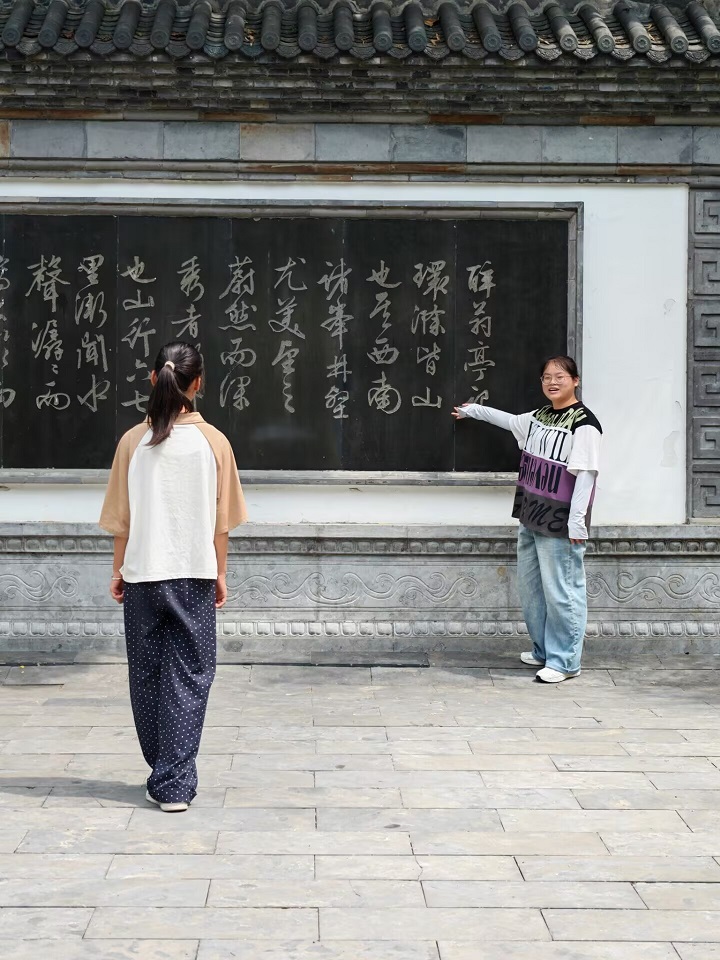 醉翁亭記
環滁皆山
也其西南
諸峯林壑
尤美望之
蔚然而深
秀者
也山行六七
里漸聞水
聲潺々而